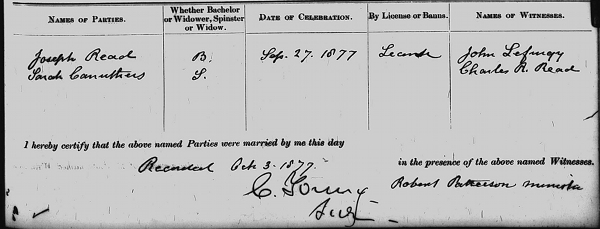 NAMES OF PARTIES. Whether Bachelor or Widower, Spinster or Widow. DATE OF CELEBRATION. By License or Banns. NAMES OF WITNESSES.
Joseph Read B. Sep. 27. 1877 License John
Sarah Carruthers S. Charles R. Read
I hereby certify that the above named Parties were married by me this day
Recorded Oct 3. 1877. in the presence of the above named Witnesses.
C. Young Robert Patterson minister